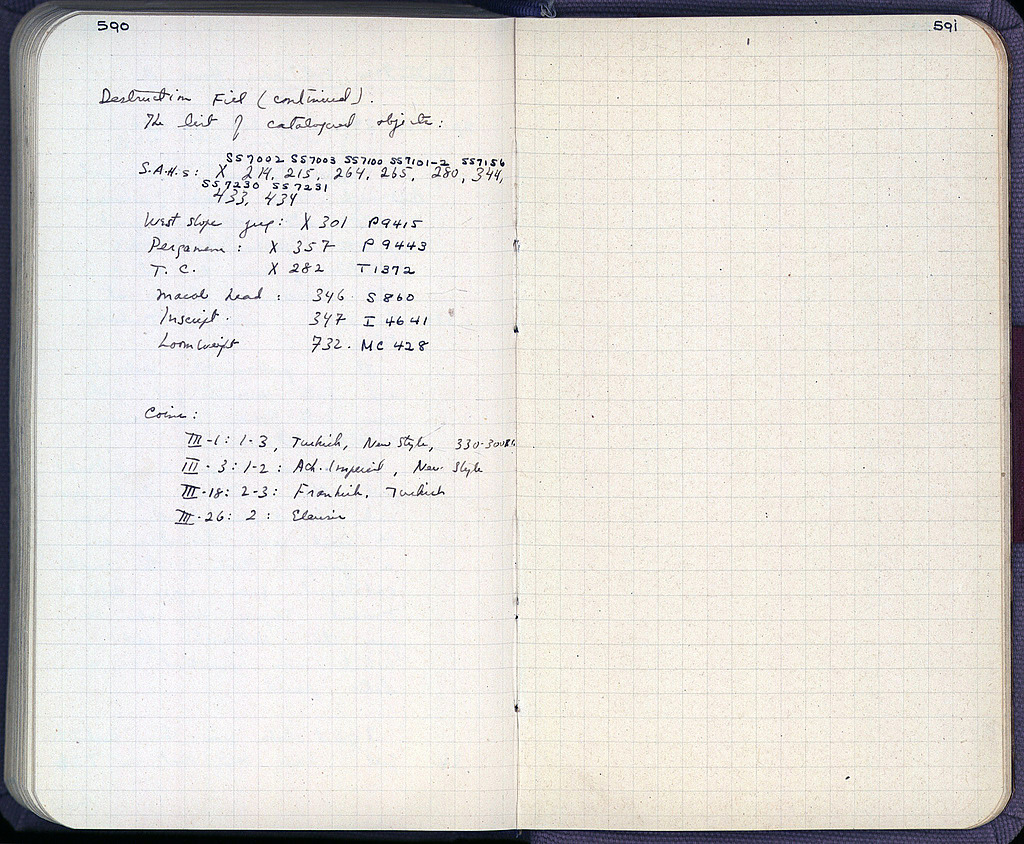 590
Destruction Fill (continued).
The list of catalogued objects:
SS7002 SS7003 SS7100 SS7101-2 SS7156
S.A.H.s: X 214, 215, 264, 265, 280, 344,
SS7230 SS7231
433, 434
West slope jug: X 301 P9415
Pergamene: X 357 P 9443
T. C. X 282 T1372
head: 346. S 860
Inscript. 347 I 4641
Loomweight 732. MC 428
Coins:
III-1: 1-3, Turkish, New Style, 330-300BC
III-3: 1-2: Ath. Imperial, New Style
III-18: 2-3: Frankish, Turkish
III-26: 2: Eleusis
591